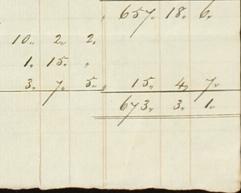 657, 18, 6,
10, 2, 2,
1, 15, ,
3, 7, 5, 15, 4, 7,
673, 3, 1,